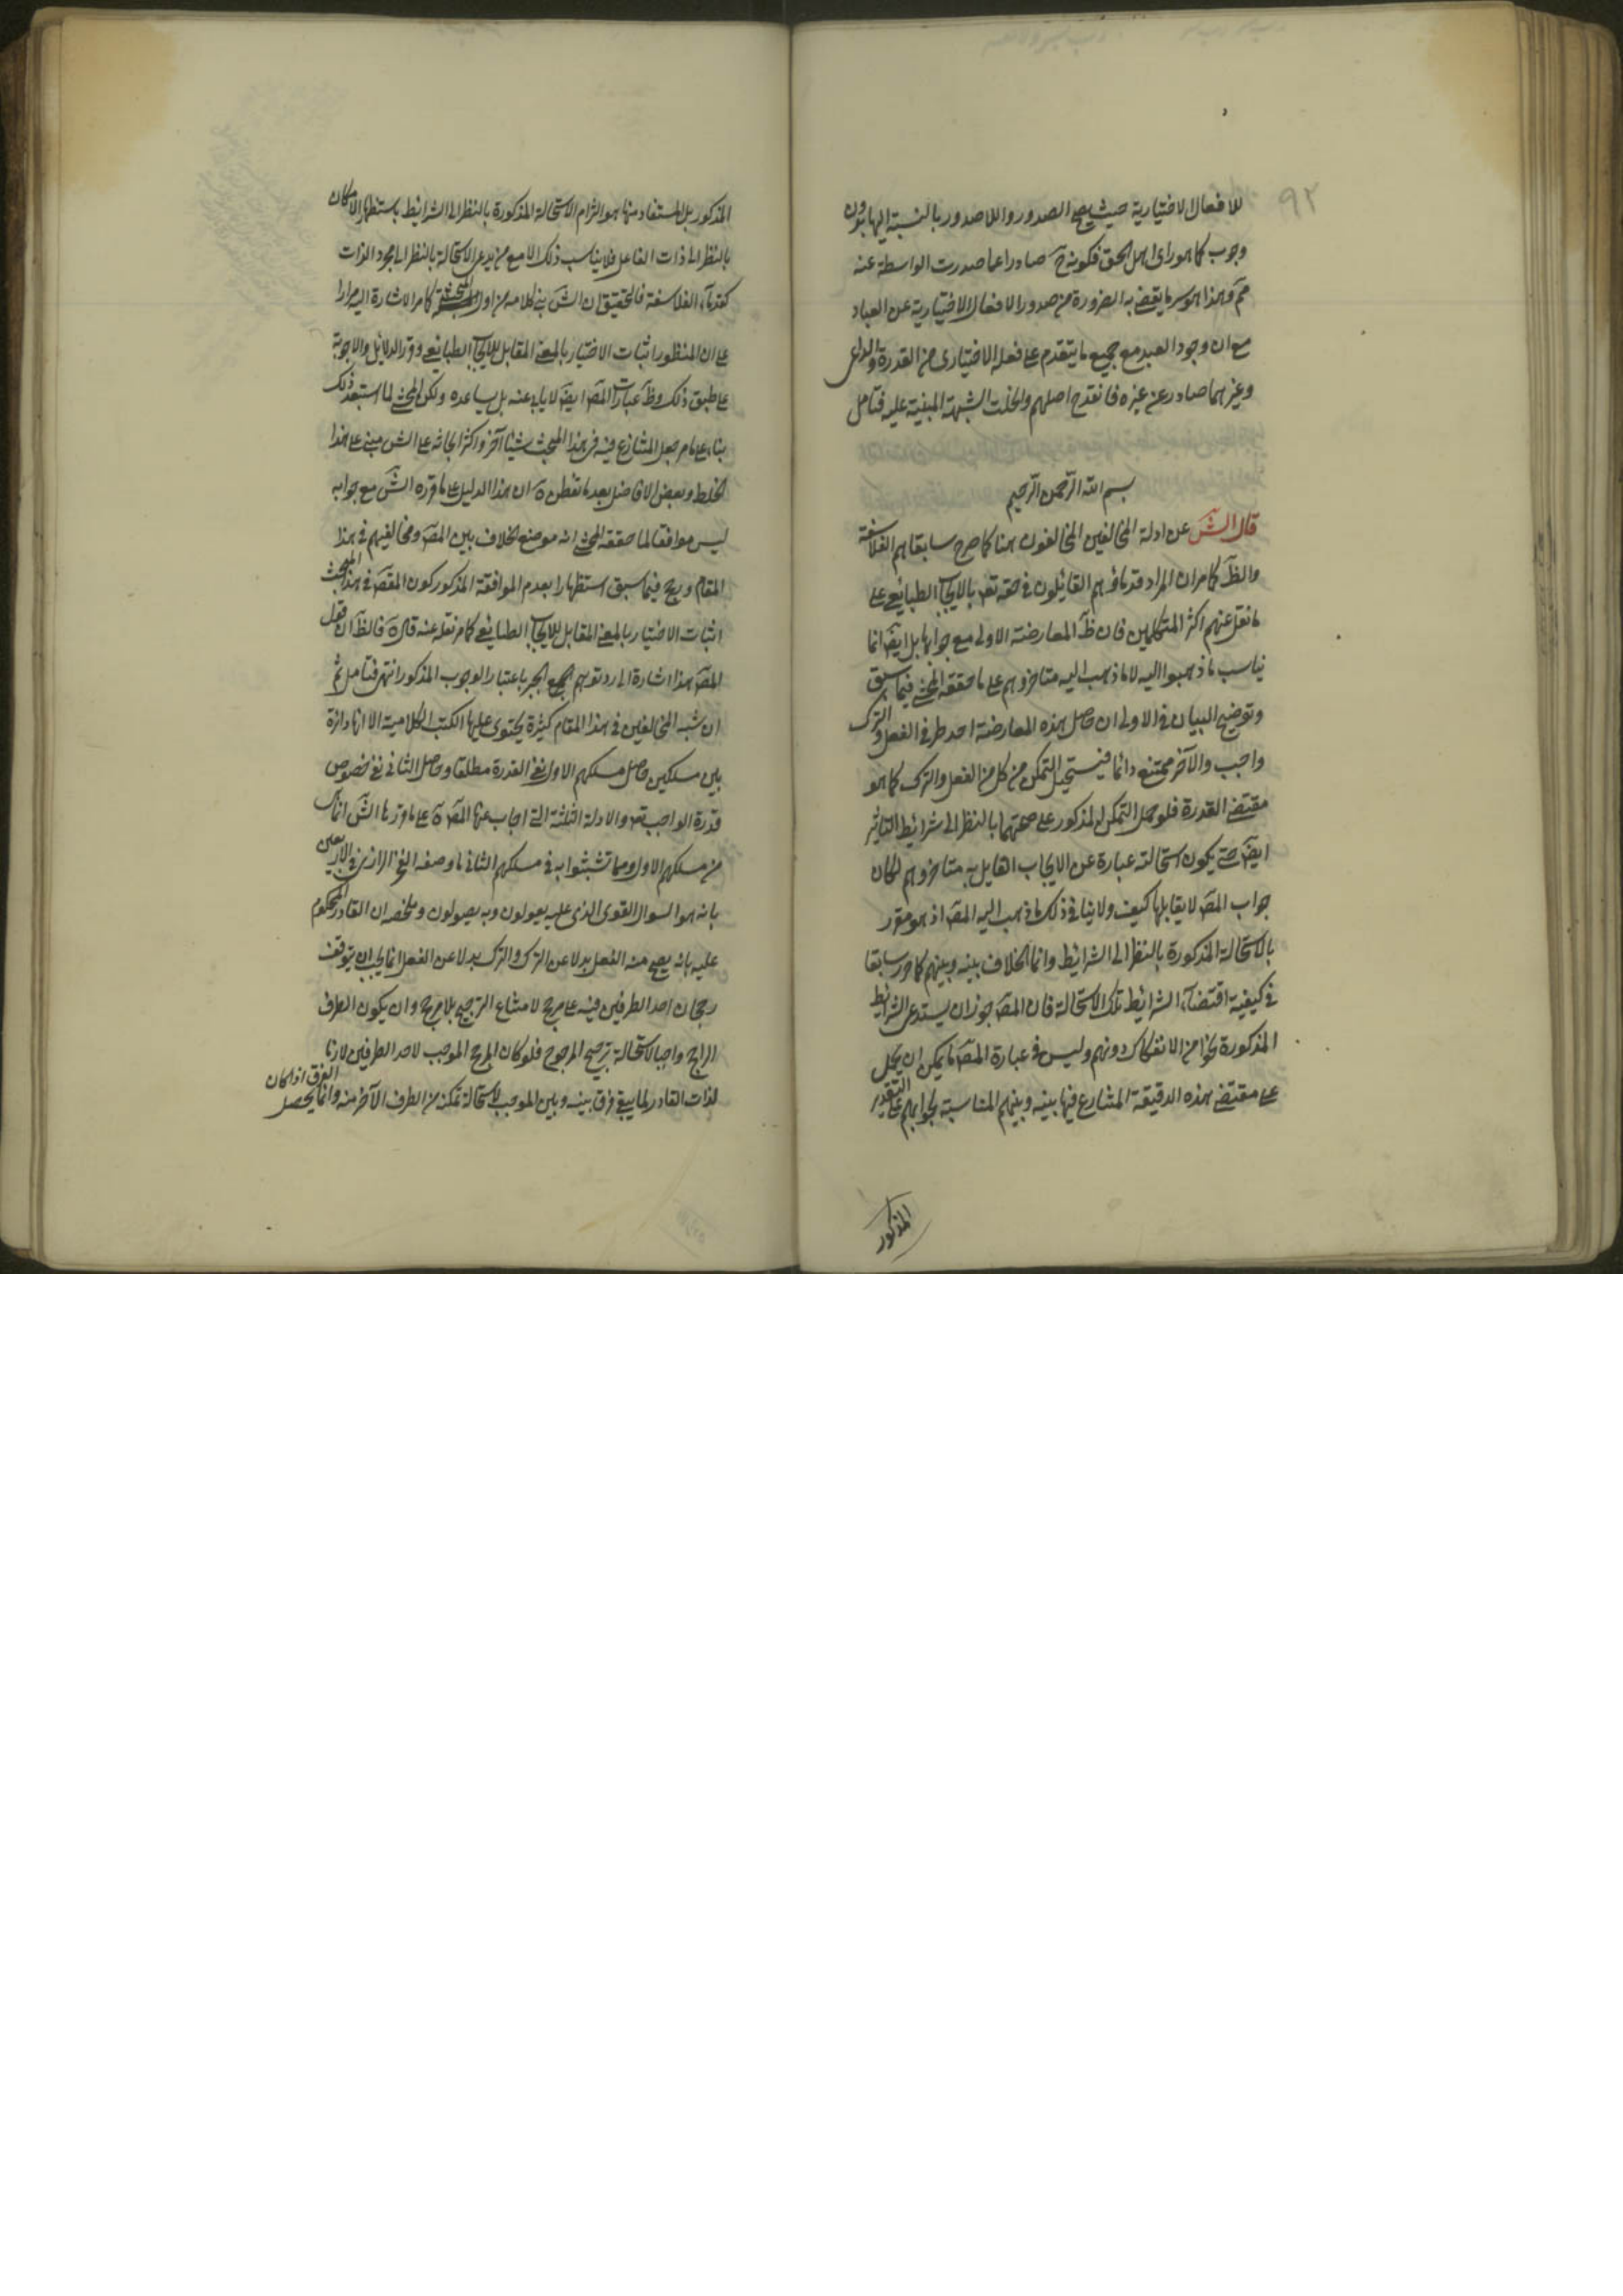 ٩٢
للافعال الاختيارية حيث يصح الصدور واللاصدور بالنسبة اليها بدون
وجوب كما هو راى اهل الحق فكونه ح صادرا عما صدرت الواسطة عنه
مم وهذا هو سر ما يقضى به الضرورة من صدور الافعال الاختيارية عن العباد
مع ان وجود العبد مع جميع ما يتقدم على فعله الاختيارى من القدرة والداعى
وغيرهما صادر عن غيره فانقدح اصلهم وانحلت الشبهة المبنية عليه فتامل
بسم الله الرحمن الرحيم
قال الش عن ادلة المخالفين المخالفون هنا كما صرح سابقا هم الفلاسفة
والظ كما مر ان المراد قدماؤهم القائلون فى حقه تع بالايجاب الطبائعى على
ما نقل عنهم اكثر المتكلمين فان ظ المعارضة الاولى مع جوابها بل ايض انما
يناسب ما ذهبوا اليه لا ما ذهب اليه متاخروهم على ما حققه المحشى فيما سبق
وتوضيح البيان فى الاولى ان حاصل هذه المعارضة احد طرفى الفعل والترك
واجب والآخر ممتنع دائما فيستحيل التمكن من كل من الفعل والترك كما هو
مقتضى القدرة فلو حمل التمكن المذكور على صحتهما بالنظر الى شرائط التاثير
ايض حتى يكون استحالته عبارة عن الايجاب القايل به متاخروهم لكان
جواب المص لا يقابلها كيف ولا ينافى ذلك ما ذهب اليه المص اذ هو مقرر
بالاستحالة المذكورة بالنظر الى الشرائط وانما الخلاف بينه وبينهم كما مر سابقا
فى كيفية اقتضاء الشرائط تلك الاستحالة فان المص جوز ان يستدعى الشرائط
المذكورة نحوا من الانفكاك دونهم وليس فى عبارة المص ما يمكن ان يحمل
على مقتضى هذه الدقيقة المتنازع فيها بينه وبينهم المناسبة لجوابهم على التقدير
المذكور
المذكور بل المستفاد منها هو التزام الاستحالة المذكورة بالنظر الى الشرائط باستظهار الامكان
بالنظر الى ذات الفاعل فلا يناسب ذلك الا مع من يدعى الاستحالة بالنظر الى مجرد الذات
كقدماء الفلاسفة فالتحقيق ان الش بنى كلامه من اول المبحث كما مر الاشارة اليه مرارا
على ان المنظور اثبات الاختيار بالمعنى المقابل للايجاب الطبائعى وقرر الدلائل والاجوبة
على طبق ذلك وظ عبارات المص ايض لا يابى عنه بل يساعده ولكن المحشى لما استبعد ذلك
بناء على ما مر جعل المتنازع فيه فى هذا المبحث شيئا آخر واكثر ابحاثه على الش مبنى على هذا
الخلط وبعض الافاضل بعد ما تفطن ان هذا الدليل على ما قرره الش مع جوابه
ليس موافقا لما حققه المحشى انه موضع الخلاف بين المص ومخالفيهم فى هذا
المقام ورجح فيما سبق استظهارا بعدم الموافقة المذكور كون المقص فى هذا المبحث
اثبات الاختيار بالمعنى المقابل للايجاب الطبائعى كما مر نقله عنه قال فالظ ان قول
المص هذا اشارة الى رد توهم الجبر باعتبار الوجوب المذكور انتهى فتامل ثم
ان شبه المخالفين فى هذا المقام كثيرة يحتوى عليها الكتب الكلامية الا انها دائرة
بين مسلكين حاصل مسلكهم الاول نفى القدرة مطلقا وحاصل الثانى نفى خصوص
قدرة الواجب تع والادلة الثلثة التى اجاب عنها المص على ما قررها الش انما
من مسلكهم الاول ومما تشبثوا به فى مسلكهم الثانى ما وصفه الفخر الرازى فى الاربعين
بانه هو السوال القوى الذى عليه يعولون وبه يصولون وملخصه ان القادر المحكوم
عليه بانه يصح منه الفعل بدلا عن الترك والترك بدلا عن الفعل انما يجب ان يتوقف
رجحان احد الطرفين فيه على مرجح لامتناع الترجيح بلا مرجح وان يكون الطرف
الراجح واجبا لاستحالة ترجيح المرجوح فلو كان المرجح الموجب لاحد الطرفين لازما
لذات القادر لما يبقى فرق بينه وبين الموجب لاستحالة تمكنه من الطرف الآخر منه وانما يحصل الفرق اذا كان